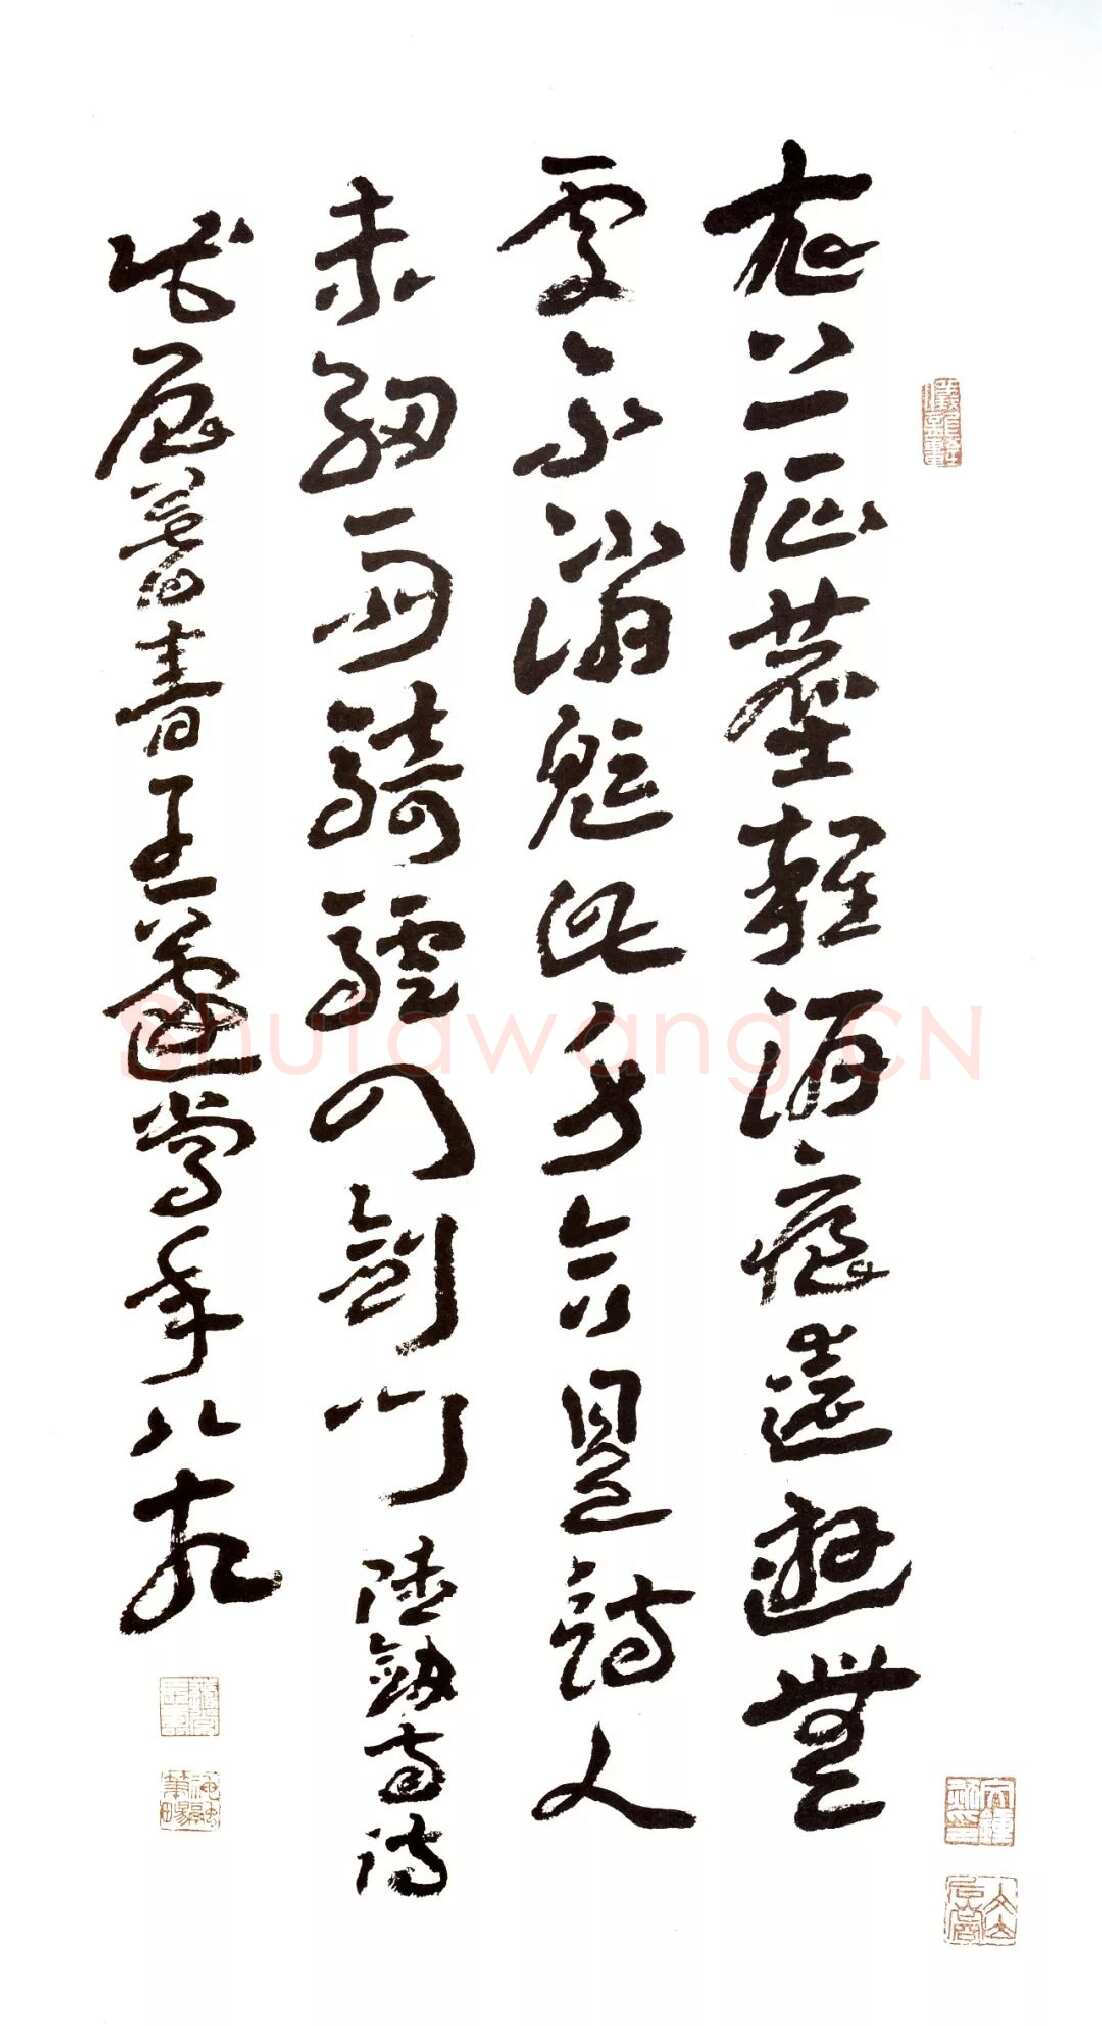 衣上征塵雜酒痕遠遊無
處不消魂此身合是詩人
未細雨騎驢入劍門 陸劍南詩
戊辰暮春王蘧常年八十九
Shufawang.CN